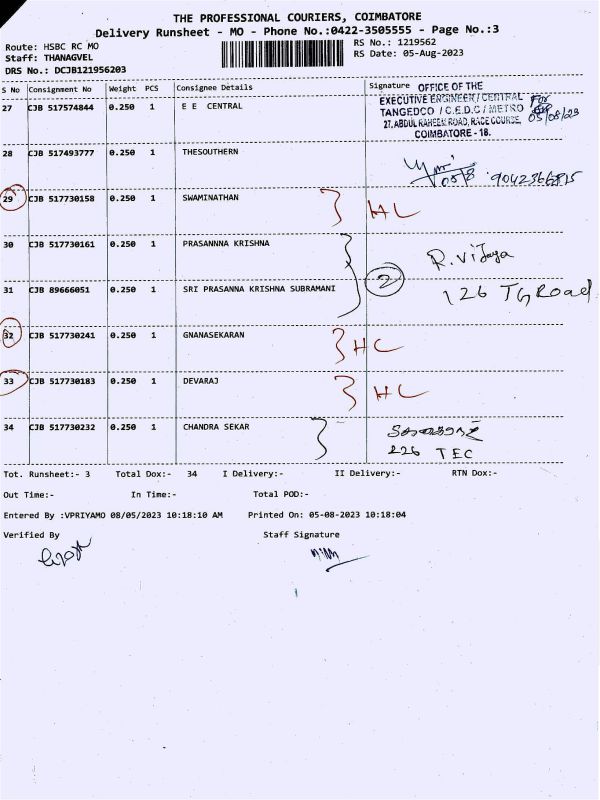 THE PROFESSIONAL COURIERS, COIMBATORE
Delivery Runsheet - MO - Phone No.:0422-3505555 - Page No.:3
Route: HSBC RC MO RS No.: 1219562
Staff: THANAGVEL RS Date: 05-Aug-2023
DRS No.: DCJB121956203
S No Consignment No Weight PCS Consignee Details Signature
OFFICE OF THE
EXECUTIVE ENGINEER / CENTRAL
TANGEDCO / C.E.D.C / METRO
27, ABDUL RAHEEM ROAD, RACE COURSE,
COIMBATORE - 18.
For
05/08/23
27 CJB 517574844 0.250 1 E E CENTRAL
28 CJB 517493777 0.250 1 THESOUTHERN
05/8 9042366815
29 CJB 517730158 0.250 1 SWAMINATHAN HL
30 CJB 517730161 0.250 1 PRASANNNA KRISHNA R. Vijaya
31 CJB 89666051 0.250 1 SRI PRASANNA KRISHNA SUBRAMANI 2 126 TG Road
32 CJB 517730241 0.250 1 GNANASEKARAN HC
33 CJB 517730183 0.250 1 DEVARAJ HL
34 CJB 517730232 0.250 1 CHANDRA SEKAR
226 TEC
Tot. Runsheet:- 3 Total Dox:- 34 I Delivery:- II Delivery:- RTN Dox:-
Out Time:- In Time:- Total POD:-
Entered By :VPRIYAMO 08/05/2023 10:18:10 AM Printed On: 05-08-2023 10:18:04
Verified By Staff Signature